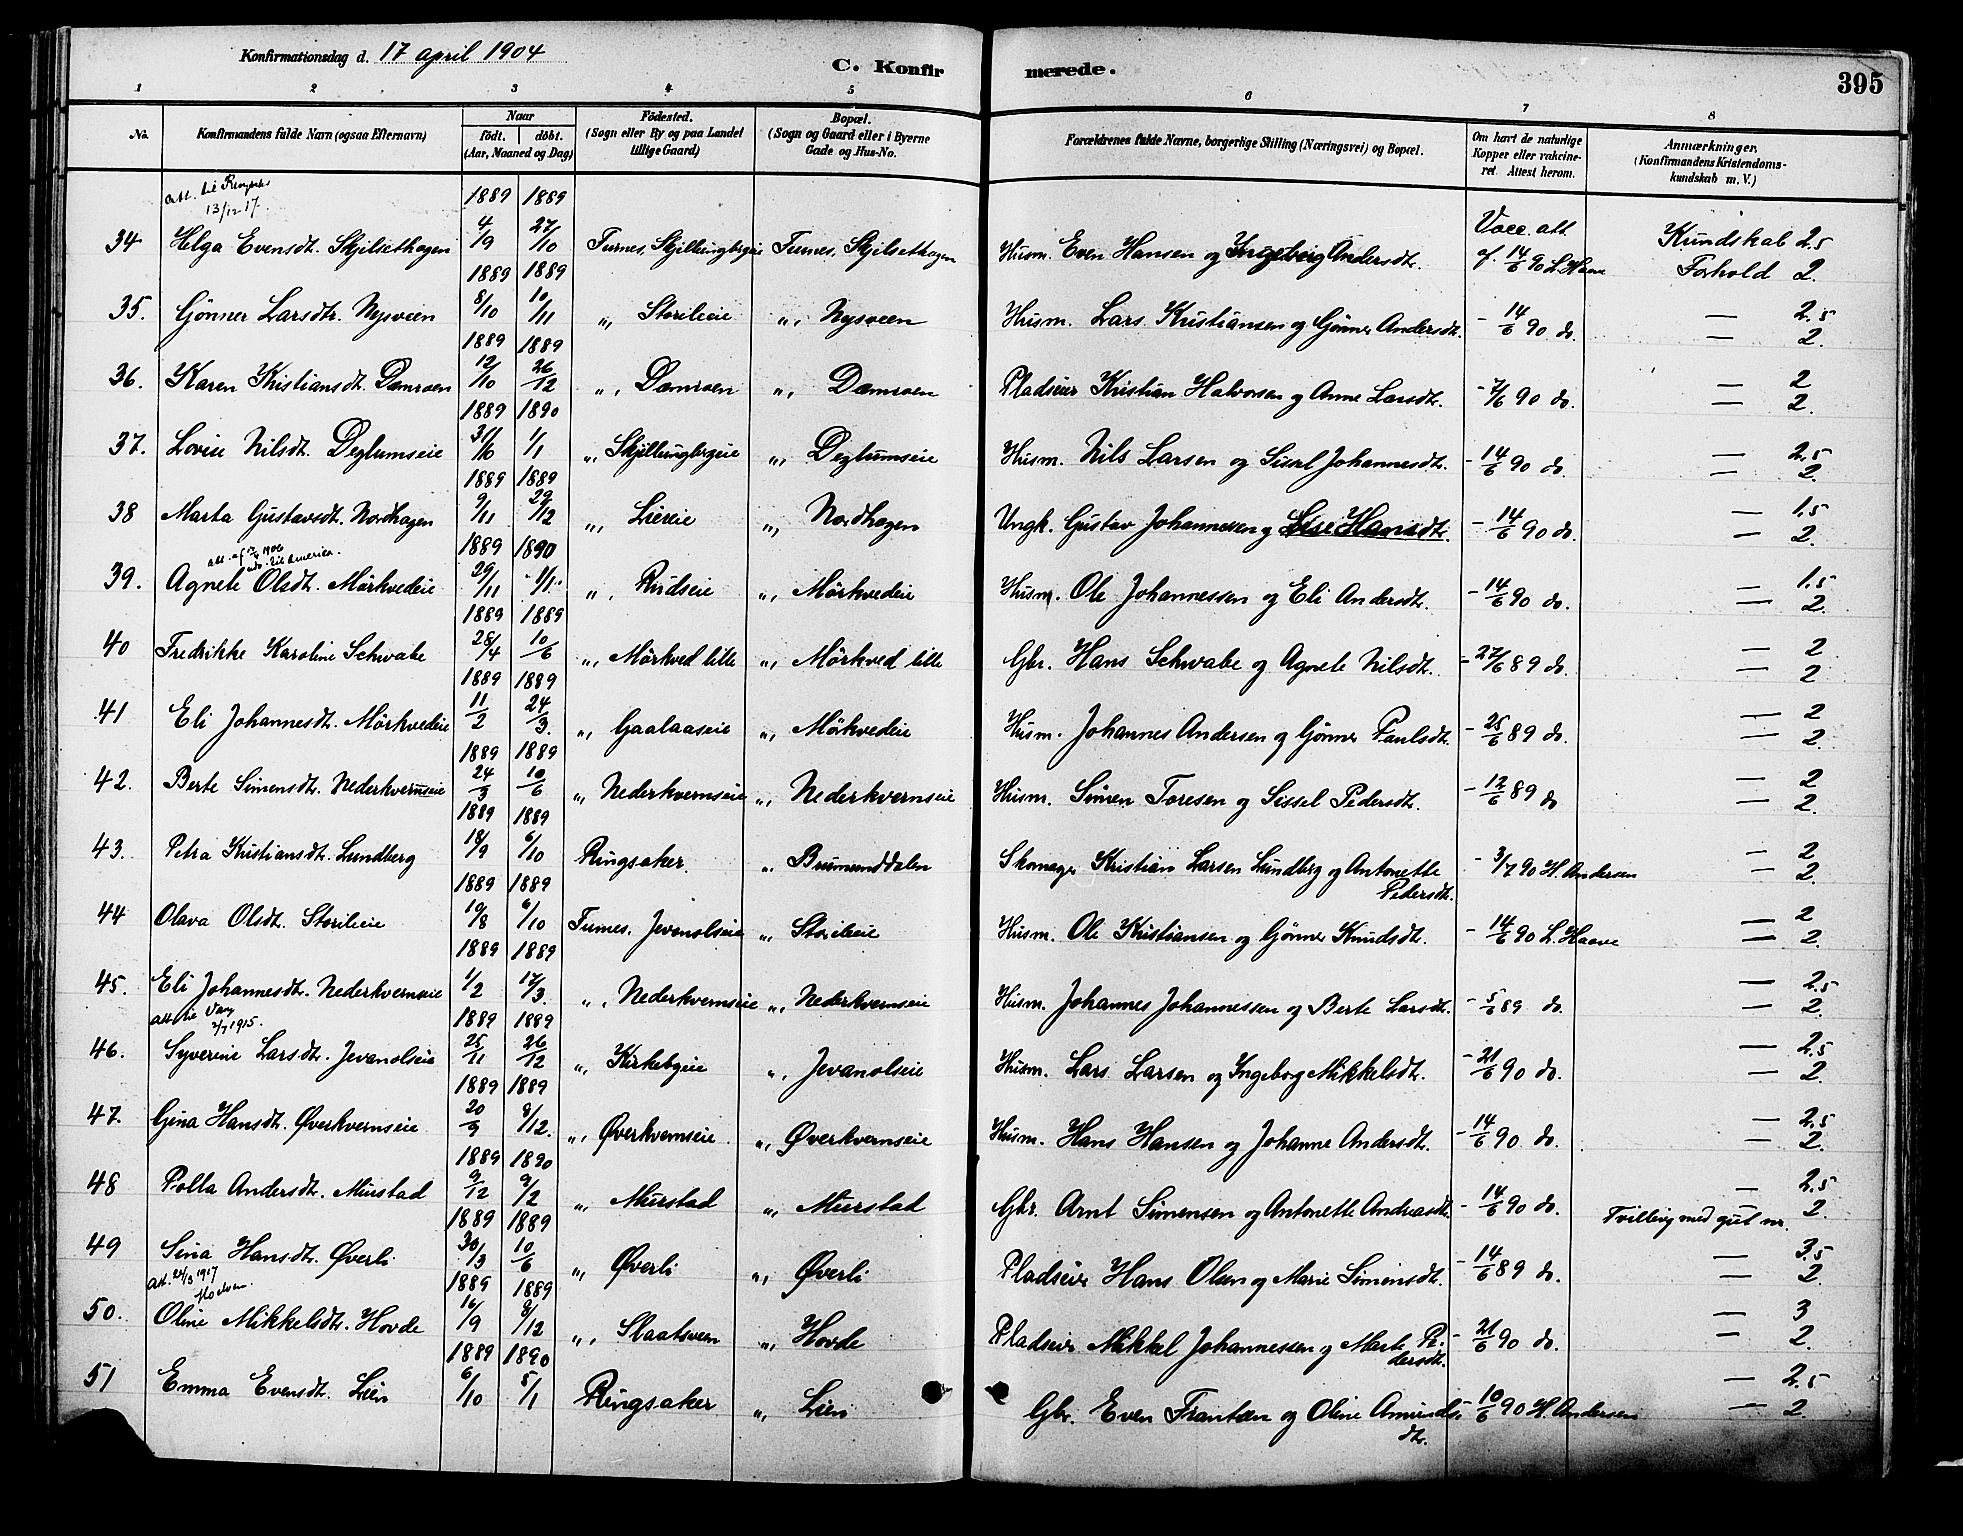 Konfirmationsdag d. 17 april 1904
C. Konfirmerede.
395
1 2 3 4 5 6 7 8
No. Konfirmandens fulde Navn (ogsaa Efternavn) Naar født. døbt. (Aar, Maaned og Dag) Fødested. (Sogn eller By og paa Landet tillige Gaard) Bopæl. (Sogn og Gaard eller i Byerne Gade og Hus-No. Forældrenes fulde Navne, borgerlige Stilling (Næringsvei) og Bopæl. Om havt de naturlige Kopper eller vakcineret. Attest herom. Anmærkninger. (Konfirmandens Kristendomskundskab m. V.)
13/12 17.
34 Helga Evensdt. Skjilsethagen 1889 4/9 1889 27/10 Furnes, Skjillungbergeie Furnes, Skjilsethagen Husm. Even Hansen og Ingeborg Andersdt. Vacc. att. af. 14/6 90 L. Haave Kundskab 2.5 Forhold 2.
35. Gønner Larsdtr. Nysveen 1889 8/10 1889 10/11 " Storilieie " Nysveen Husm. Lars Kristiansen og Gønner Andersdt. - 14/6 90 do. — 2.5 — 2.
36. Karen Kristiansdt. Damroen 1889 12/10 1889 26/12 " Damroen " Damroen Pladseier Kristian Halvorsen og Anne Larsdt. - 7/6 90 do. — 2 — 2.
37. Lovise Nilsdt. Deglumseie 1889 31/10 1890 1/1 " Skjellungbrgeie " Deglumseie Husm. Nils Larsen og Sissel Johannesdt. - 14/6 90 do. — 2.5 — 2.
38 Marta Gustavsdt. Nordhagen 1889 9/11 1889 29/12 " Liereie " Nordhagen Ungk. Gustav Johannessen og Lise Hansdt. - 14/6 90 do. — 1.5 — 2.
til Amerika.
39. Agnete Olsdt. Mørkvedeie 1889 29/11 1890 1/1 " Rudseie " Mørkvedeie Husm. Ole Johannessen og Eli Andersdt. - 14/6 90 do. — 1.5 — 2.
40 Fredrikke Karoline Schwabe 1889 28/4 1889 10/6 " Mørkved lille " Mørkved lille Gbr. Hans Schwabe og Agnete Nilsdt. - 27/6 89 do. — 2 — 2
41 Eli Johannesdt. Mørkvedeie 1889 11/2 1889 24/3. " Gaalaaseie " Mørkvedeie Husm. Johannes Andersen og Gønner Paulsdt. - 25/6 89 do. — 2 — 2.
42. Berte Simensdt. Nederkvernseie 1889 24/3 1889 10/6 " Nederkvernseie " Nederkvernseie Husm. Simen Toresen og Sissel Pedersdt. - 12/6 89 do — 2 — 2.
43. Petra Kristiansdt. Lundberg 1889 18/9 1889 6/10 Ringsaker. " Brumunddalen Skomager Kristian Larsen Lundberg og Antonette Pedersdt. - 3/7 90 H. Andersen — 2 — 2.
44 Olava Olsdt. Storilieie 1889 19/8 1889 6/10 Furnes. Jevanolseie " Storilieie Husm. Ole Kristiansen og Gønner Knudsdt. - 14/6 90 L. Haave — 2 — 2.
45. Eli Johannesdt. Nederkvernseie 1889 1/2 1889 17/3. " Nederkvernseie " Nederkvernseie Husm. Johannes Johannessen og Berte Larsdt. - 5/6 89 do. — 2.5 — 2.
att. til Vang 2/7 1915.
46. Syverine Larsdt. Jevanolseie 1889 25/11 1889 26/12 " Kirkebyeie " Jevanolseie Husm. Lars Larsen og Ingeborg Mikkelsdt. - 21/6 90 do. — 2.5 — 2.
47. Gina Hansdt. Øverkvernseie 1889 20/9 1889 8/12. " Øverkvernseie " Øverkvernseie Husm. Hans Hansen og Johanne Andersdt. - 14/6 90 do. — 2.5 — 2.
48 Polla Andersdt. Murstad 1889 9/12 1890 9/2 " Murstad " Murstad Gbr. Arnt Simensen og Antonette Andreasdt. - 14/6 90 do. — 2.5 Tvilling med gut nr. 2.
49 Sina Hansdt. Øverli 1889 30/3 1889 10/6 " Øverli " Øverli Pladseier Hans Olsen og Marie Simensdt. - 14/6 89 do. — 3.5 — 2.
att. 24/3 1917
50. Oline Mikkelsdtr. Hovde 1889 16/9 1889 8/12 " Slaatsveen " Hovde Pladseier Mikkel Johannessen og Marte Pedersdt. - 21/6 90 do. — 3 — 2.
51 Emma Evensdt. Lien 1889 6/10 1890 5/1 Ringsaker " Lien Gbr. Even Frantzen og Oline Amundsdtr. - 10/6 90 H. Andersen — 2.5 — 2.